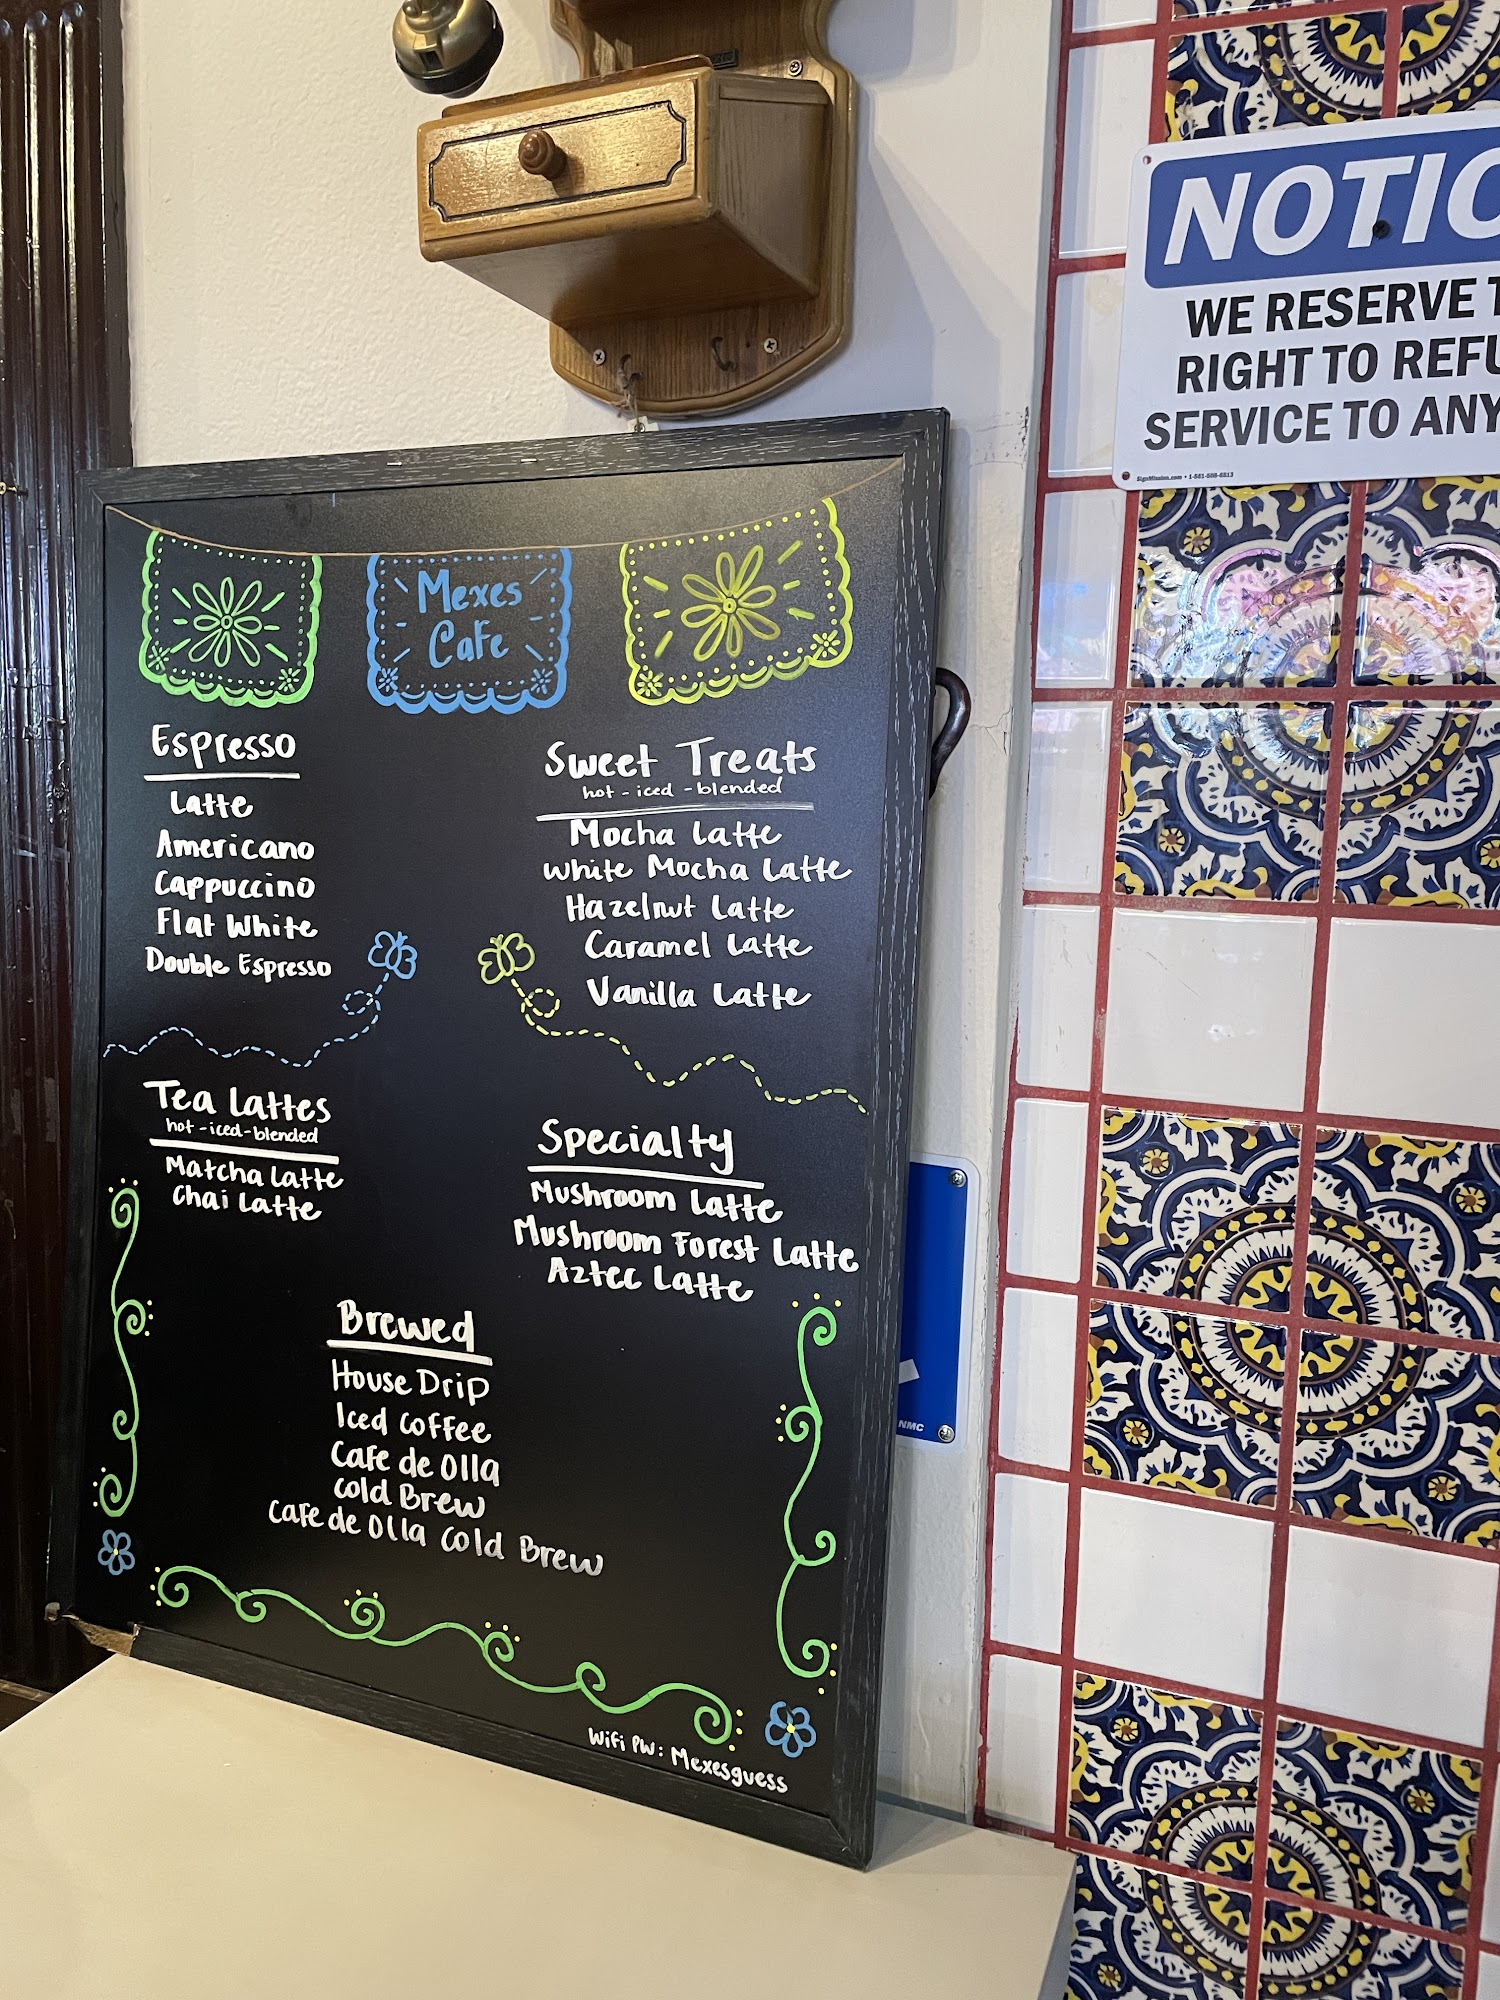 NOTIC
WE RESERVE T
RIGHT TO REFU
SERVICE TO ANY
SignMission.com • 1-561-508-6513
Mexes
Cafe
Espresso
Latte
Americano
Cappuccino
Flat White
Double Espresso
Sweet Treats
hot - iced - blended
Mocha Latte
White Mocha Latte
Hazelnut Latte
Caramel Latte
Vanilla Latte
Tea Lattes
hot - iced - blended
Matcha Latte
Chai Latte
Specialty
Mushroom Latte
Mushroom Forest Latte
Aztec Latte
Brewed
House Drip
Iced Coffee
Cafe de Olla
Cold Brew
Cafe de Olla Cold Brew
Wifi PW: Mexesguess
NMC